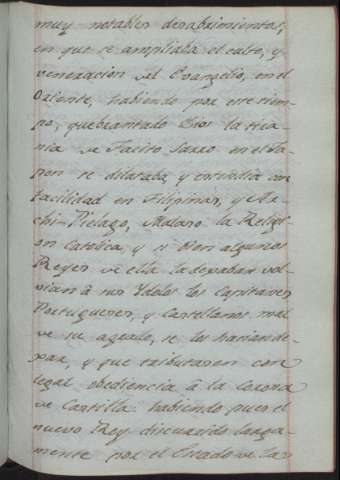 muy notables descubrimientos,
en que se ampliaba el culto, y
veneracion del Evangelio, en el
Oriente, habiendo por este tiem-
po, quebrantado Dios la tira-
nia de Faciro Sarro en el Ja-
pon se dilataba, y estendia con
facilidad en Filipinas, y Ar-
chi-Pielago, Malaro la Religi-
on Catolica, y si bien algunos
Reyes de ella la dejaban vol-
vian â sus Ydolos los Capitanes
Portugueses, y Castellanos mal
de su agrado, se los hacian de-
xar, y que tributasen con
legal obediencia â la Corona
de Castilla. habiendo pues el
nuevo Rey discurrido larga-
mente por el Estado de la